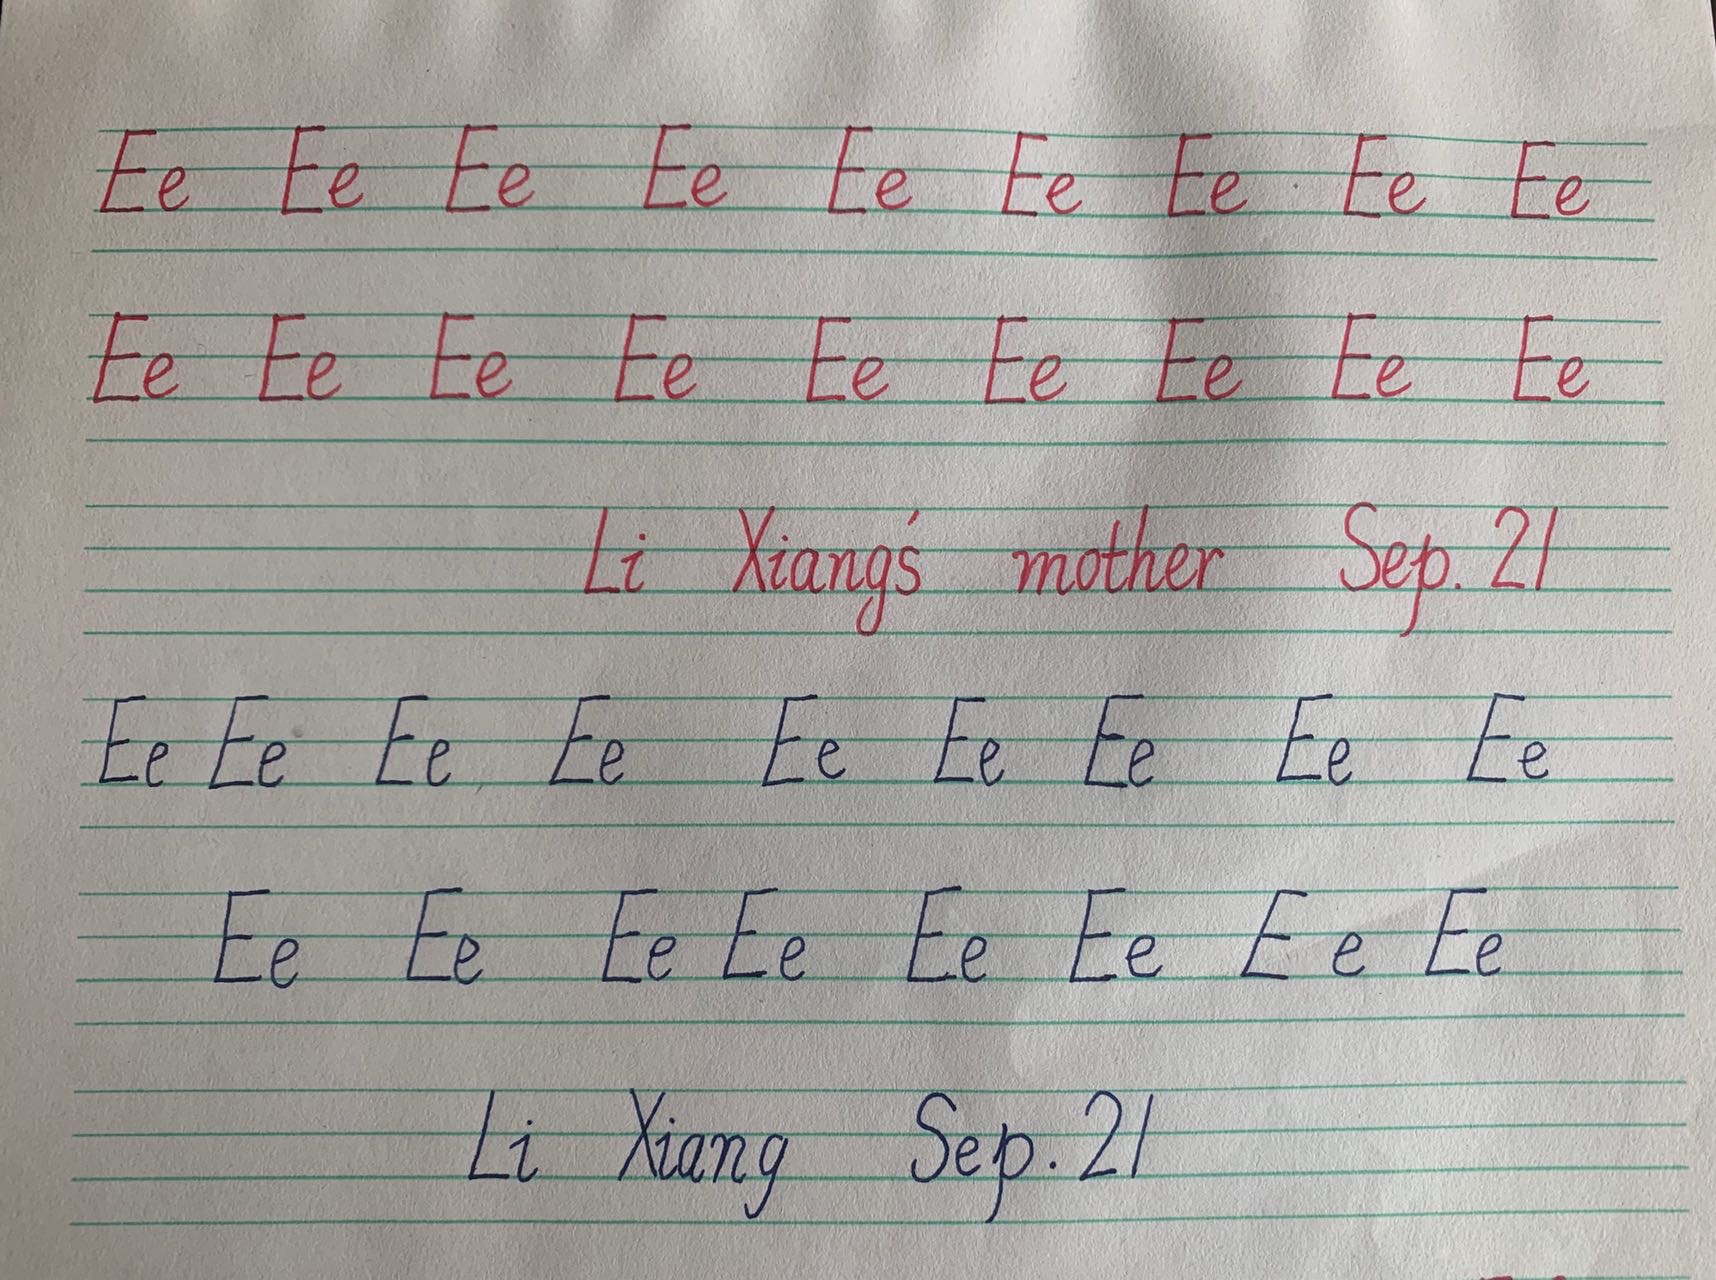 Ee Ee Ee Ee Ee Ee Ee Ee Ee
Ee Ee Ee Ee Ee Ee Ee Ee Ee
Li Xiang's mother Sep. 21
Ee Ee Ee Ee Ee Ee Ee Ee Ee
Ee Ee Ee Ee Ee Ee E e Ee
Li Xiang Sep. 21